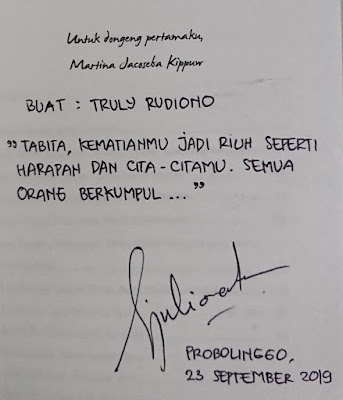 Untuk dongeng pertamaku,
Martina Jacoseba Kippuw
BUAT : TRULY RUDIONO
"TABITA, KEMATIANMU JADI RIUH SEPERTI
HARAPAN DAN CITA-CITAMU. SEMUA
ORANG BERKUMPUL ..."
PROBOLINGGO,
23 SEPTEMBER 2019